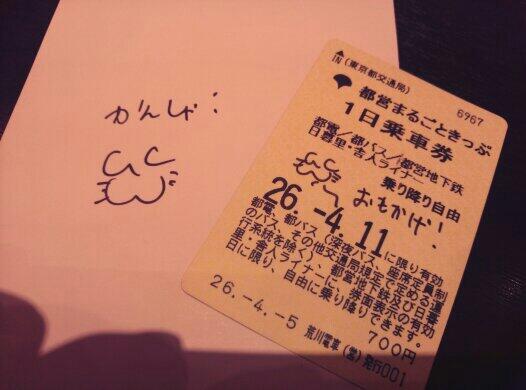 IN (東京都交通局)
6967
都営まるごときっぷ
1日乗車券
都電/都バス/都営地下鉄
日暮里・舎人ライナー
乗り降り自由
おもかげ!
26.-4.11に限り有効
都電、都バス(深夜バス、座席定員制
のバス、その他交通局規定で定める運
行系統を除く)、都営地下鉄及び日暮
里・舎人ライナーに、券面表示の有効
日に限り、自由に乗り降りできます。
700円
26.-4.-5 荒川電車(営)発行001